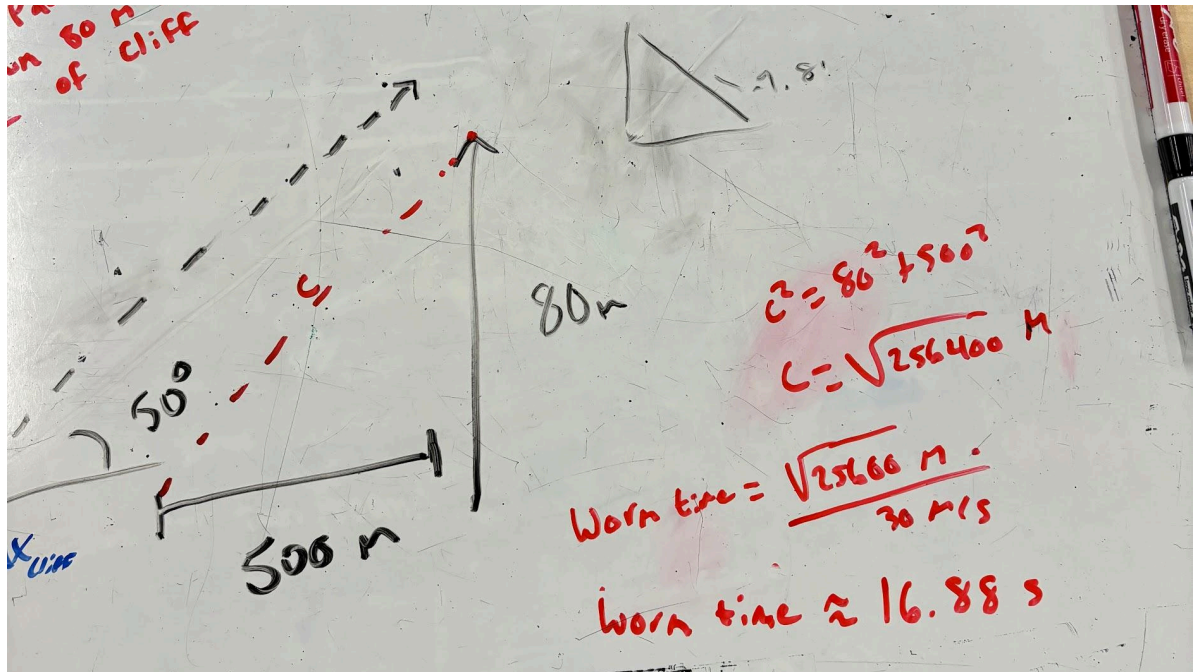 on 80 M
of Cliff
9.8
80m
50°
500 m
c
c² = 80² + 500²
c = √256400 M
Worm time = √25600 M
30 M/s
Worm time ≈ 16.88 s
X cliff